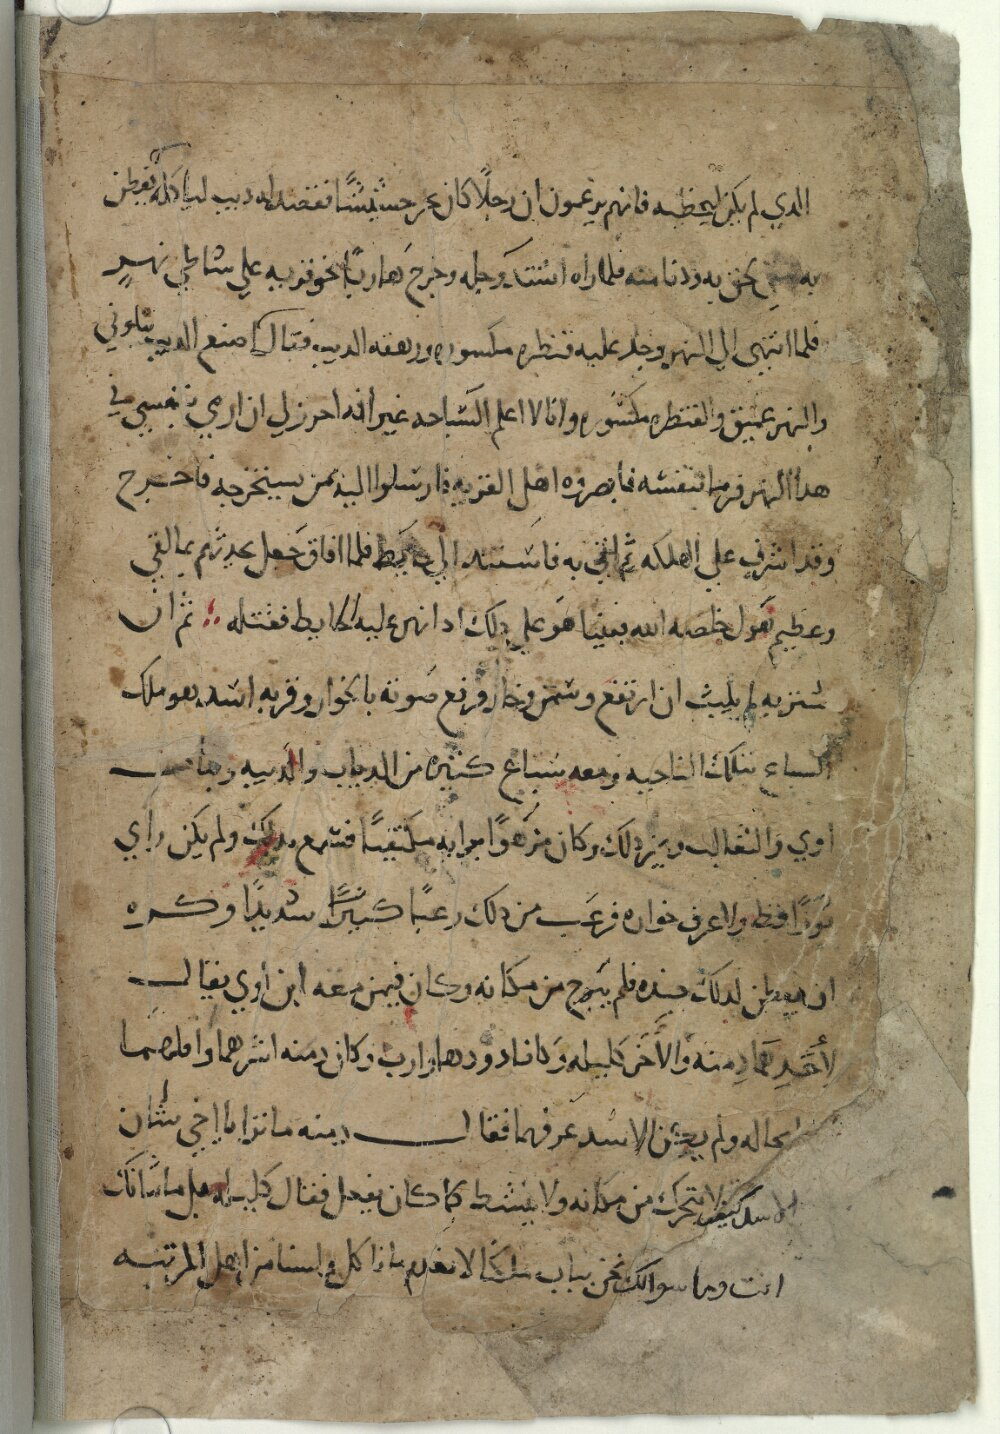 الدي لم يكن ليخطيه فانهم يزعمون ان رجلًا كان يجز حشيشًا فقصد له ديب لياكله ففطن
به يحق به ودنا منه فلما راه اشتد وجله وخرج هاربًا نحو قريه علي شاطي نهرٍ
فلما انتهي الي النهر وجد عليه قنطره مكسوره ورهقه الديب فقال كيف اصنع الديب يتلوني
والنهر عميق والقنطره مكسوره وانا لا اعلم السباحه غير انه احرز لي ان ارمي بنفسي في
هدا النهر فرما بنفسه فابصروه اهل القريه فارسلوا اليه من يستخرجه فاخرج
وقد اشرف علي الهلكه ثم اتي به فاسند الي حايط فلما افاق جعل يحدثهم بما لقي
وعظيم هول خلصه الله بفينا هو علي دلك اد انهد عليه الحايط فقتله ثم ان
شنزبه لم يلبث ان ارتفع وسمن وخار ورفع صوته بالخوار وقربه اسد هو ملك
السباع بتلك الناحيه ومعه سباع كثيره من الدياب والدببه وبنات
اوي والثعالب وغير دلك وكان مزهوًا برايه مكتفيًا فسمع بدلك ولم يكن راي
ثورًا قط ولا عرف خواره فرعب من دلك رعبًا كبيرًا شديدًا وكره
ان يفطن لدلك جنده فلم يبرح من مكانه وكان فيمن معه ابن اوي يقال
لأحدهما دمنه والأخر كليله وكانا دو دها وارب وكان دمنه اشرهما واقلهما
بحاله ولم يكن الاسد عرفهما فقال دمنه ما ترا يا اخي بشان
الاسد كيف لا يتحرك من مكانه ولا ينشط كما كان يفعل فقال كليله بل ما شانك
انت وما سوالك نحن بباب ملكنا لا نعدم ما ناكل ولسنا من اهل المرتبه